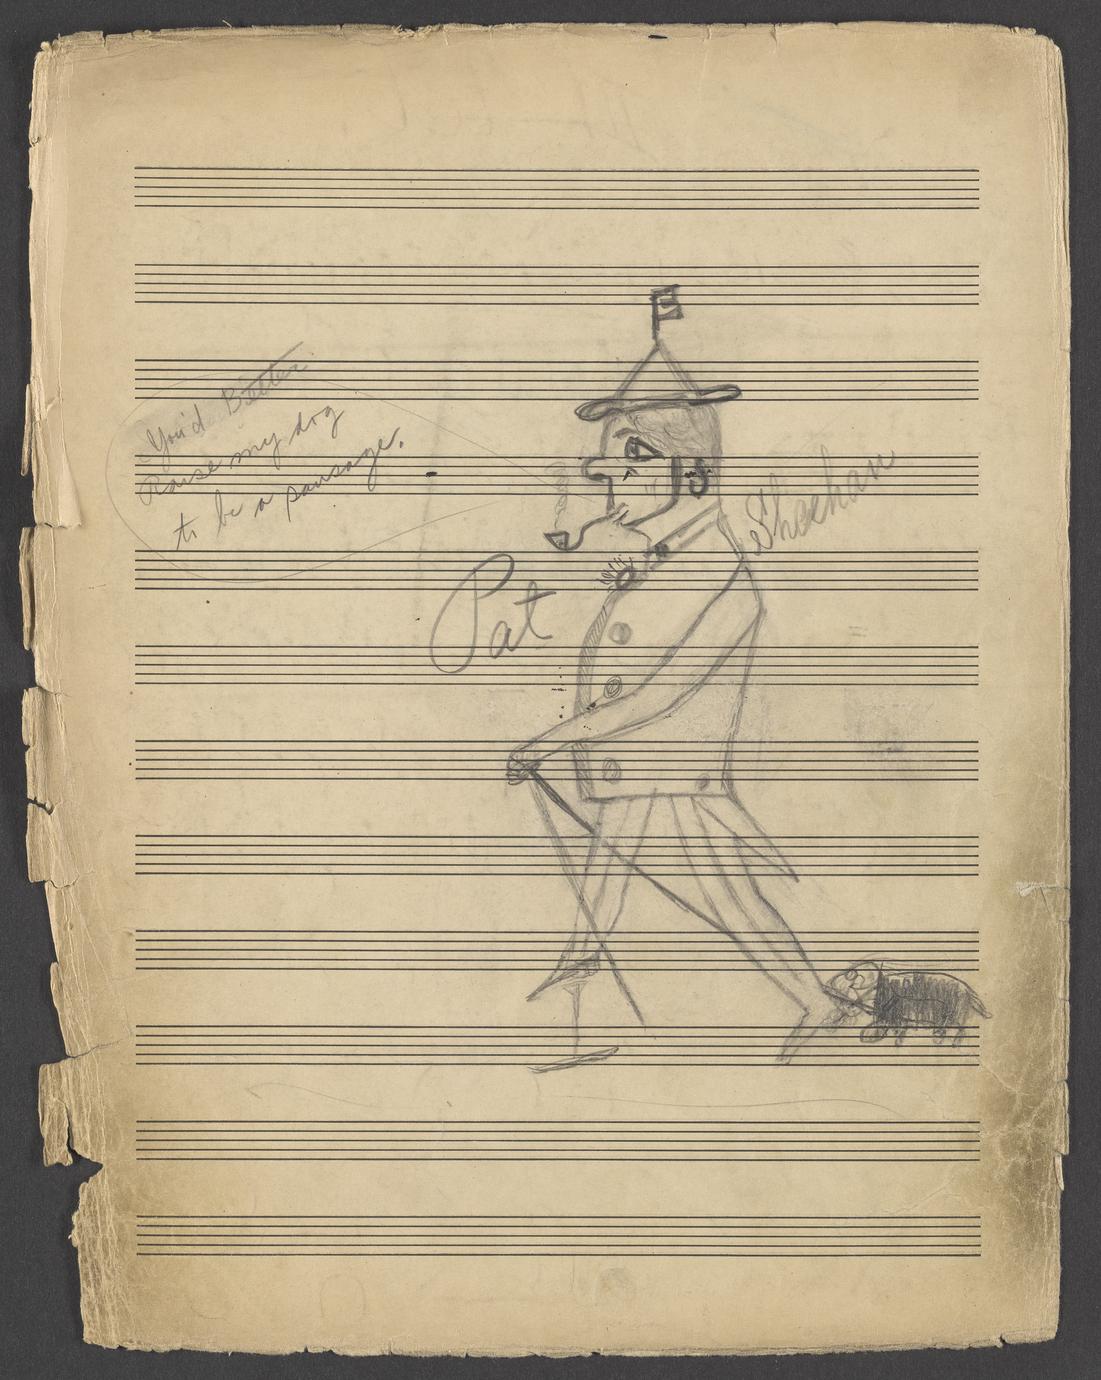 You'd Better
Raise my dog
to be a sausage.
Pat
Sheehan